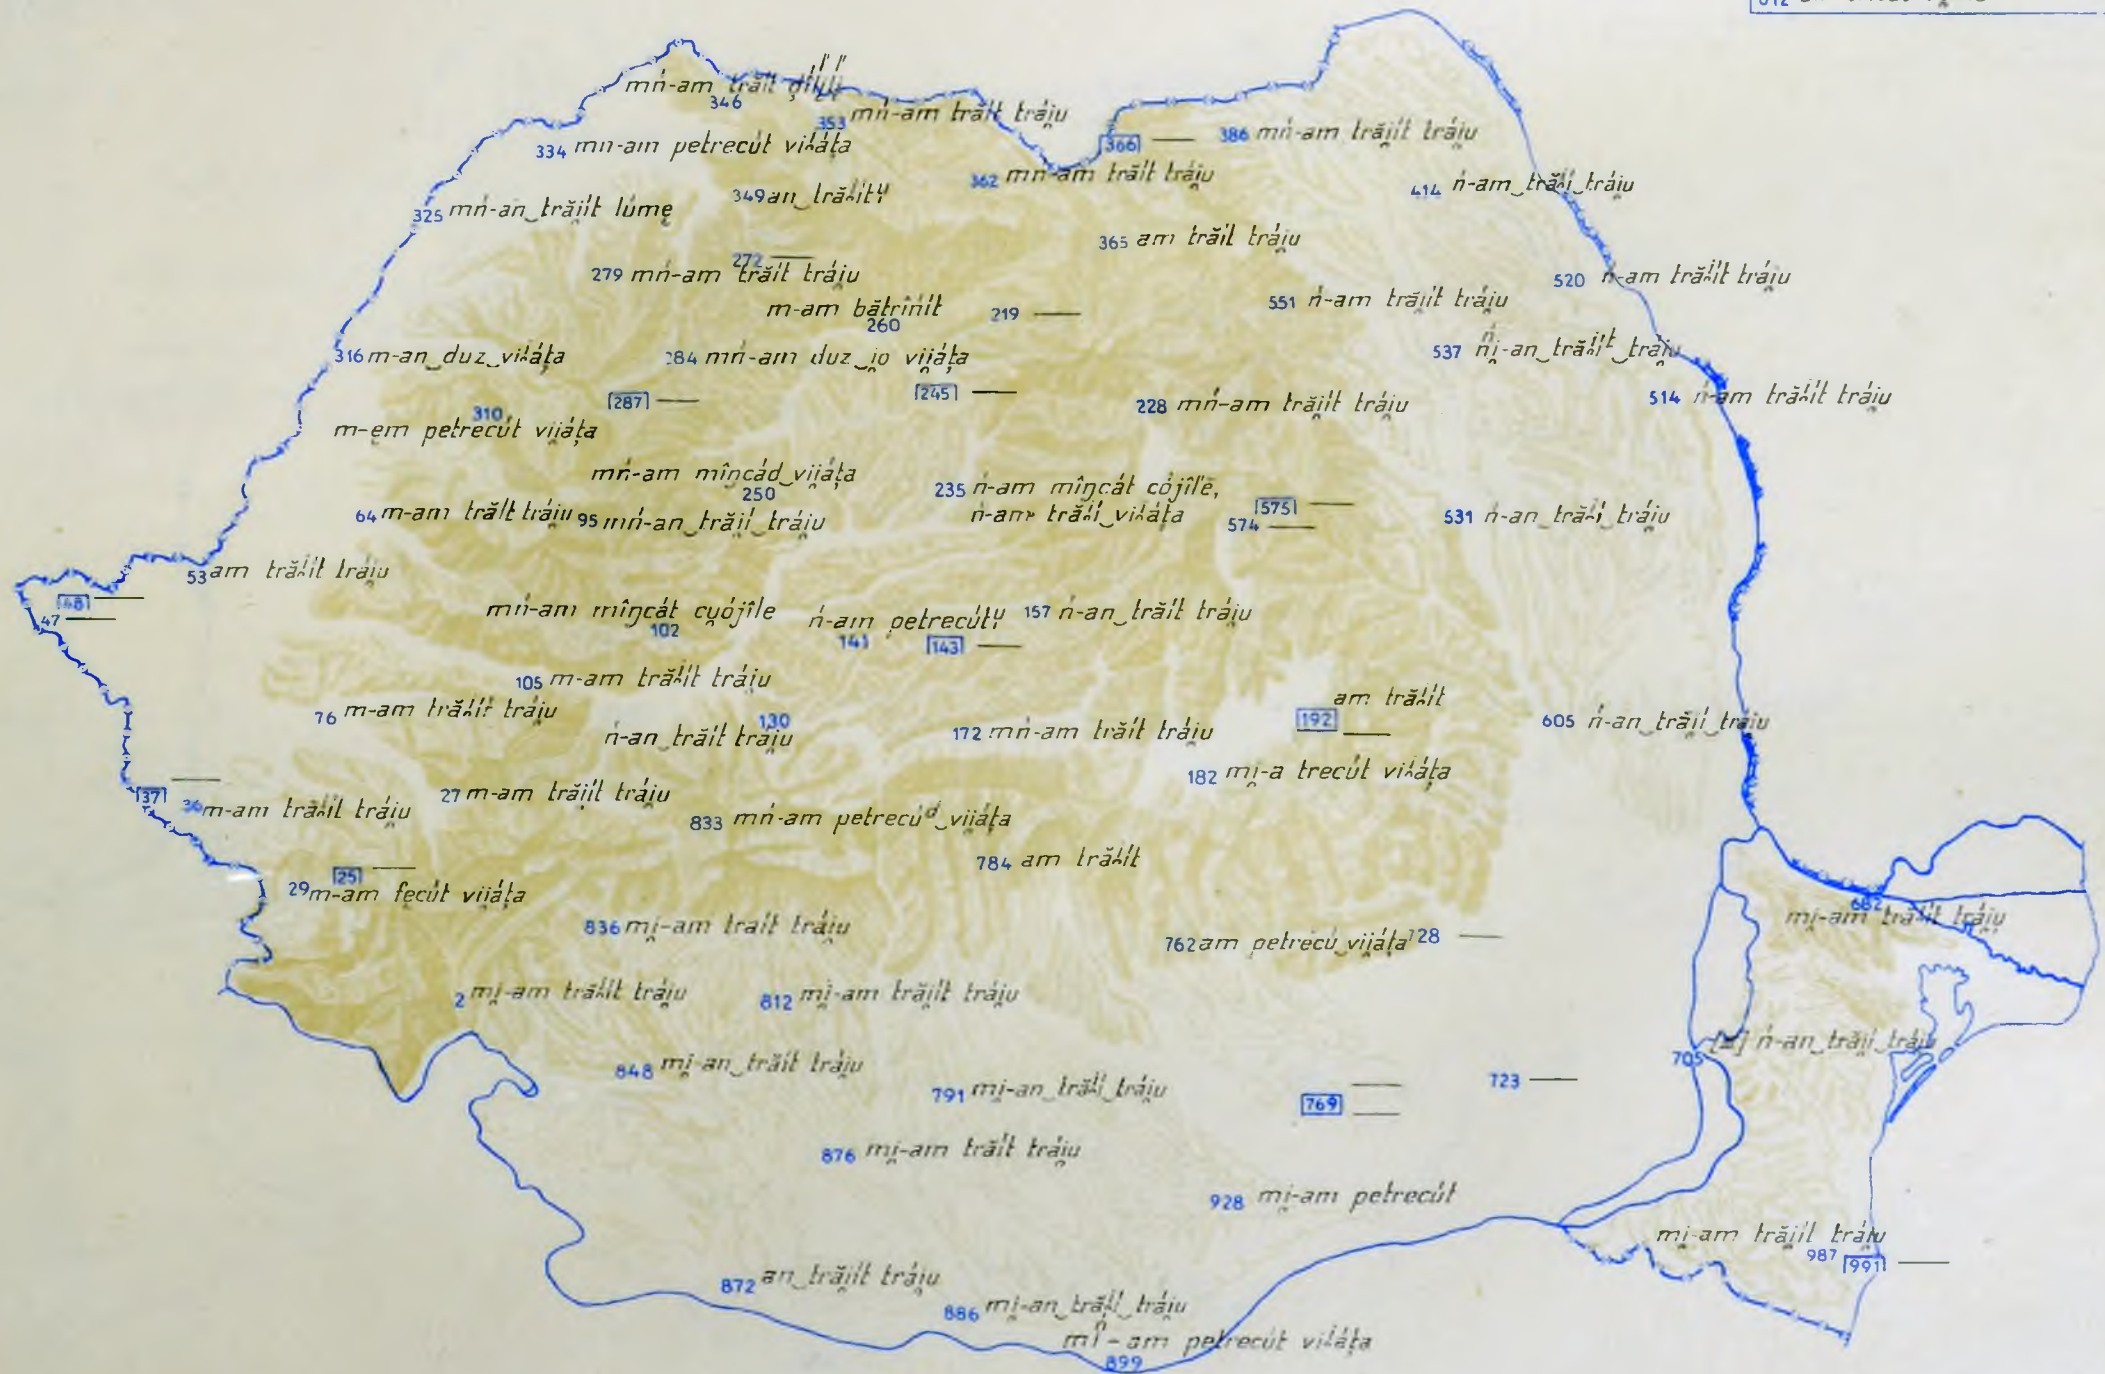 mń-am trăít
346
353 mń-am trăít trái̯u
366 —
386 mń-am trăi̯ít trái̯u
334 mn-am petrecút vii̯áța
362 mń-am trăít trái̯u
414 ń-am‿trăií‿trái̯u
325 mń-an‿trăi̯ít lúmę
349 an‿trăiítᶙ
365 am trăít trái̯u
272 —
279 mń-am trăít trái̯u
520 ń-am trăiít trái̯u
m-am bătrînít
260
219 —
551 ń-am trăi̯ít trái̯u
316 m-an‿duz‿vii̯áța
284 mń-am duz‿i̯o vii̯áța
537 ńi̯-an‿trăiít‿trái̯u
287 —
245 —
228 mń-am trăi̯ít trái̯u
514 ń-am trăiít trái̯u
310
m-em petrecút vii̯áța
mń-am mîŋcád‿vii̯áța
250
235 ń-am mîŋcát cójîle,
ń-am trăií‿vii̯áța
575 —
574 —
64 m-am trăít trái̯u
95 mń-an‿trăi̯í‿trái̯u
531 ń-an‿trăií‿trái̯u
53 am trăiít trái̯u
48 —
47 —
mń-am mîŋcát cu̯ójîle
102
ń-am petrecútᶙ
141
143 —
157 ń-an‿trăít trái̯u
105 m-am trăiít trái̯u
76 m-am trăiít trái̯u
130
ń-an‿trăít trái̯u
172 mń-am trăít trái̯u
am trăiít
192 —
605 ń-an‿trăi̯í‿trái̯u
182 mi̯-a trecút vii̯áța
37 —
36 m-am trăiít trái̯u
27 m-am trăi̯ít trái̯u
833 mń-am petrecúᵈ‿vii̯áța
784 am trăiít
25 —
29 m-am fecút vii̯áța
682
mi̯-am trăiít trái̯u
836 mi̯-am trait trái̯u
762 am petrecú‿vii̯áța
728 —
2 mi̯-am trăiít trái̯u
812 mi̯-am trăi̯ít trái̯u
705 ń-an‿trăi̯í‿trái̯u
848 mi̯-an‿trăít trái̯u
791 mi̯-an‿trăií‿trái̯u
769 —
—
723 —
876 mi̯-am trăít trái̯u
928 mi̯-am petrecút
mi̯-am trăi̯ít trái̯u
987
991 —
872 an‿trăi̯ít trái̯u
886 mi̯-an‿trăií‿trái̯u
mi-am petrecút vii̯áța
899